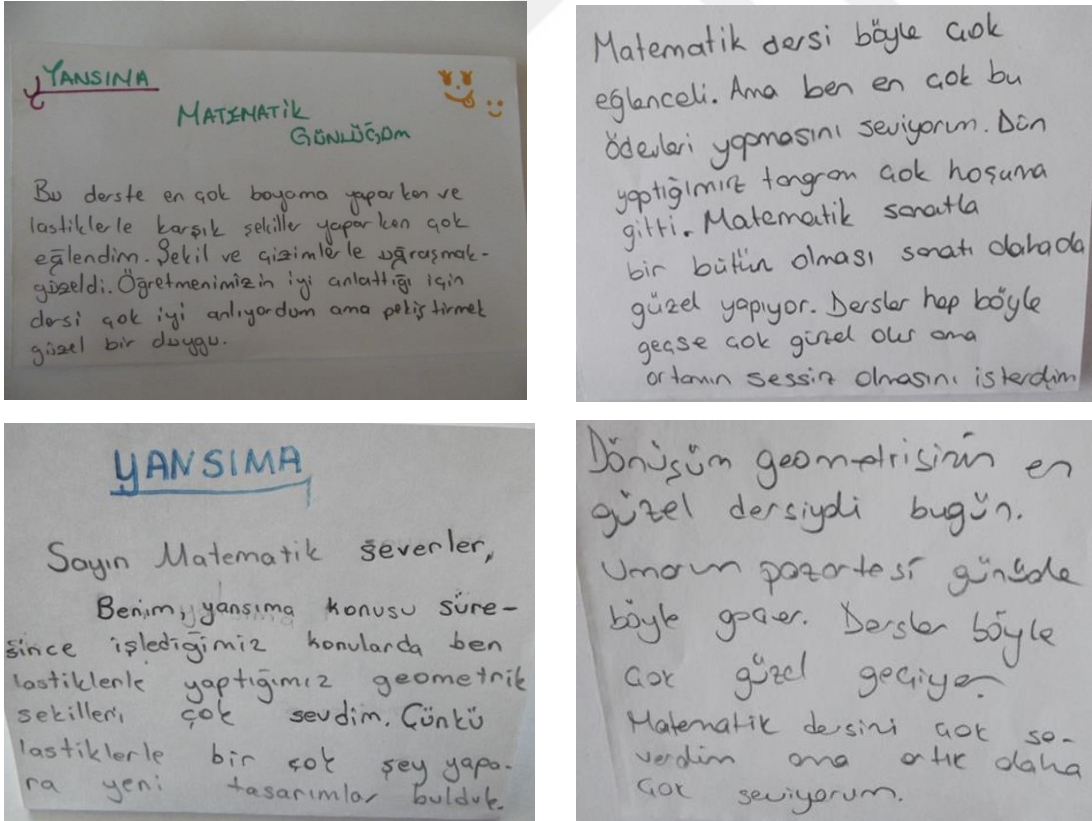 YANSIMA
MATEMATİK
GÜNLÜĞÜM
Bu derste en çok boyama yaparken ve
lastiklerle karşık şekiller yaparken çok
eğlendim. Şekil ve çizimlerle uğraşmak-
güzeldi. Öğretmenimizin iyi anlattığı için
dersi çok iyi anlıyordum ama pekiştirmek
güzel bir duygu.
Matematik dersi böyle çok
eğlenceli. Ama ben en çok bu
ödevleri yapmasını seviyorum. Dün
yaptığımız tangram çok hoşuma
gitti. Matematik sanatla
bir bütün olması sanatı dahada
güzel yapıyor. Dersler hep böyle
geçse çok güzel olur ama
ortamın sessiz olmasını isterdim
YANSIMA
Sayın Matematik severler,
Benim, yansıma konusu süre-
since işlediğimiz konularda ben
lastiklerle yaptığımız geometrik
şekilleri, çok sevdim. Çünkü
lastiklerle bir çok şey yapa-
ra yeni tasarımlar bulduk.
Dönüşüm geometrisinin en
güzel dersiydi bugün.
Umarım pazartesi günüde
böyle geçer. Dersler böyle
çok güzel geçiyor.
Matematik dersini çok se-
verdim ama artık daha
çok seviyorum.